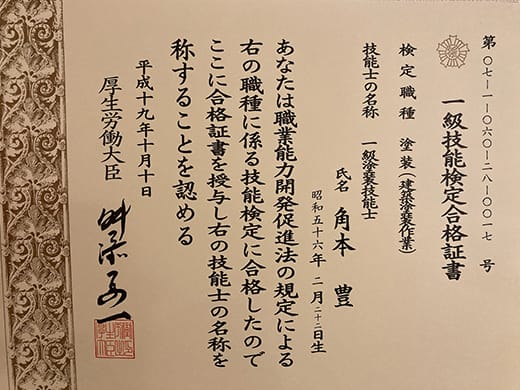 第〇七-一-〇六〇-二八-〇〇一七 号
一級技能検定合格証書
検定職種 塗装(建築塗装作業)
技能士の名称 一級塗装技能士
氏名 角本 豊
昭和五十六年 二月二十二日生
あなたは職業能力開発促進法の規定による
右の職種に係る技能検定に合格したので
ここに合格証書を授与し右の技能士の名称を
称することを認める
平成十九年十月十日
厚生労働大臣 舛添要一